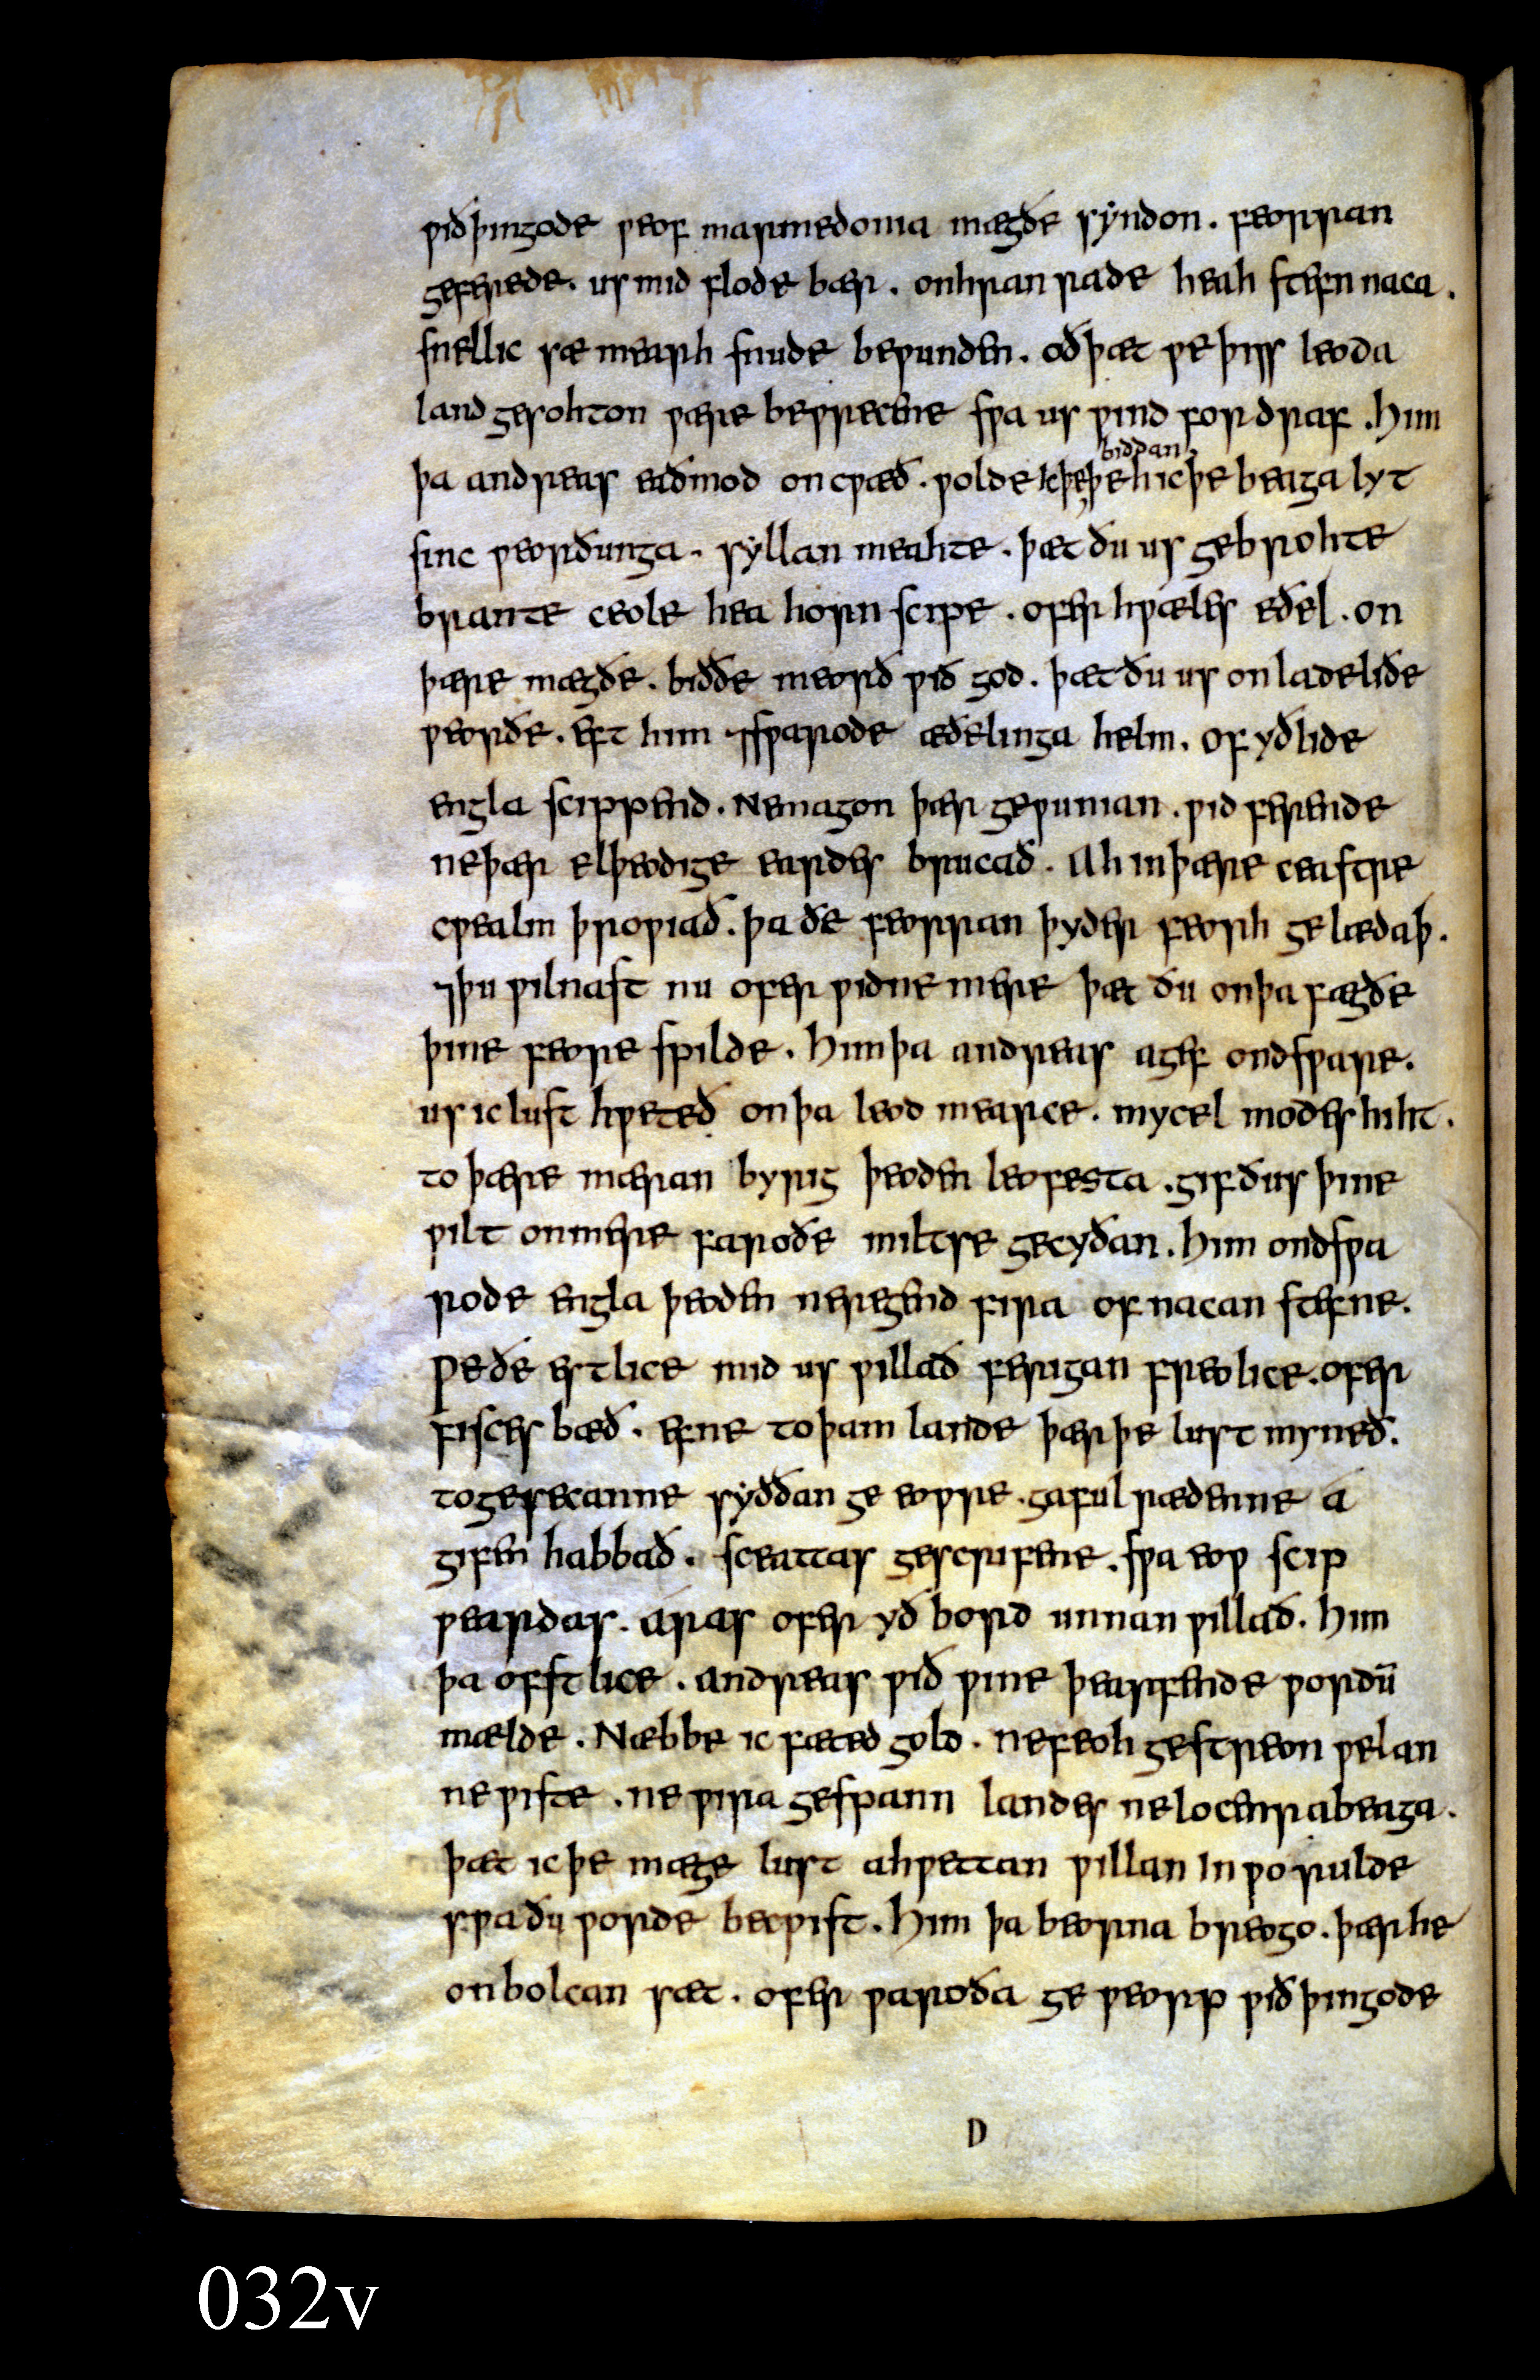 ƿið þingode ƿeof marmedonia mægðe syndon . feorran
geferede . us mid flode bær . on hran rade heah stefn naca .
snellic sæ mearh snude beƿunden . oð þæt ƿe þiss leoda
land gesohton ƿære beƿrecene sƿa us ƿind fordraf . Him
biddan
þa andreas eaðmod oncƿæð . ƿolde ic þe þeh ic þe beaga lyt
sinc ƿeorðunga . syllan meahte . þæt ðu us gebrohte
brante ceole hea horn scipe . ofer hƿæles eðel . on
þære mægðe . bið ðe meorð ƿið god . þæt ðu us on lade liðe
ƿeorðe . Eft him ⁊sƿarode æðelinga helm . of yð lide
engla scippend . Ne magon þær geƿunian . ƿid ferende
ne þær elþeodige eardes brucað . Ah in þære ceastre
cƿealm þroƿiað . þa ðe feorran þyder feorh gelædaþ .
⁊ þu ƿilnast nu ofer ƿidne mere þæt ðu on þa fægðe
þine feore spilde . Him þa andreas agef ondsƿare .
usic lust hƿeteð on þa leod mearce . mycel modes hiht .
to þære mæran byrig þeoden leofesta . gif ðu us þine
ƿilt on mere faroðe miltse gecyðan . Him ondsƿa
rode engla þeoden neregend fira of nacan stefne .
Ƿe ðe estlice mid us ƿillað ferigan freolice . ofer
fisces bæð . efne to þam lande þær þe lust myneð .
to gesecanne syððan ge eoƿre . gaful rædenne á
gifen habbað . sceattas gescrifene . sƿa eoƿ scip
ƿeardas . áras ofer yð bord unnan ƿillað . Him
þa ofstlice . andreas ƿið ƿine þearfende ƿordū
mælde . Næbbe ic fæted gold . ne feoh gestreon ƿelan
ne ƿiste . ne ƿira gespann landes ne locenra beaga .
þæt ic þe mæge lust ahƿettan ƿillan in ƿorulde
sƿa ðu ƿorde becƿist . Him þa beorna breogo . þær he
on bolcan sæt . ofer ƿaroða geƿeorp ƿið þingode
D
032v